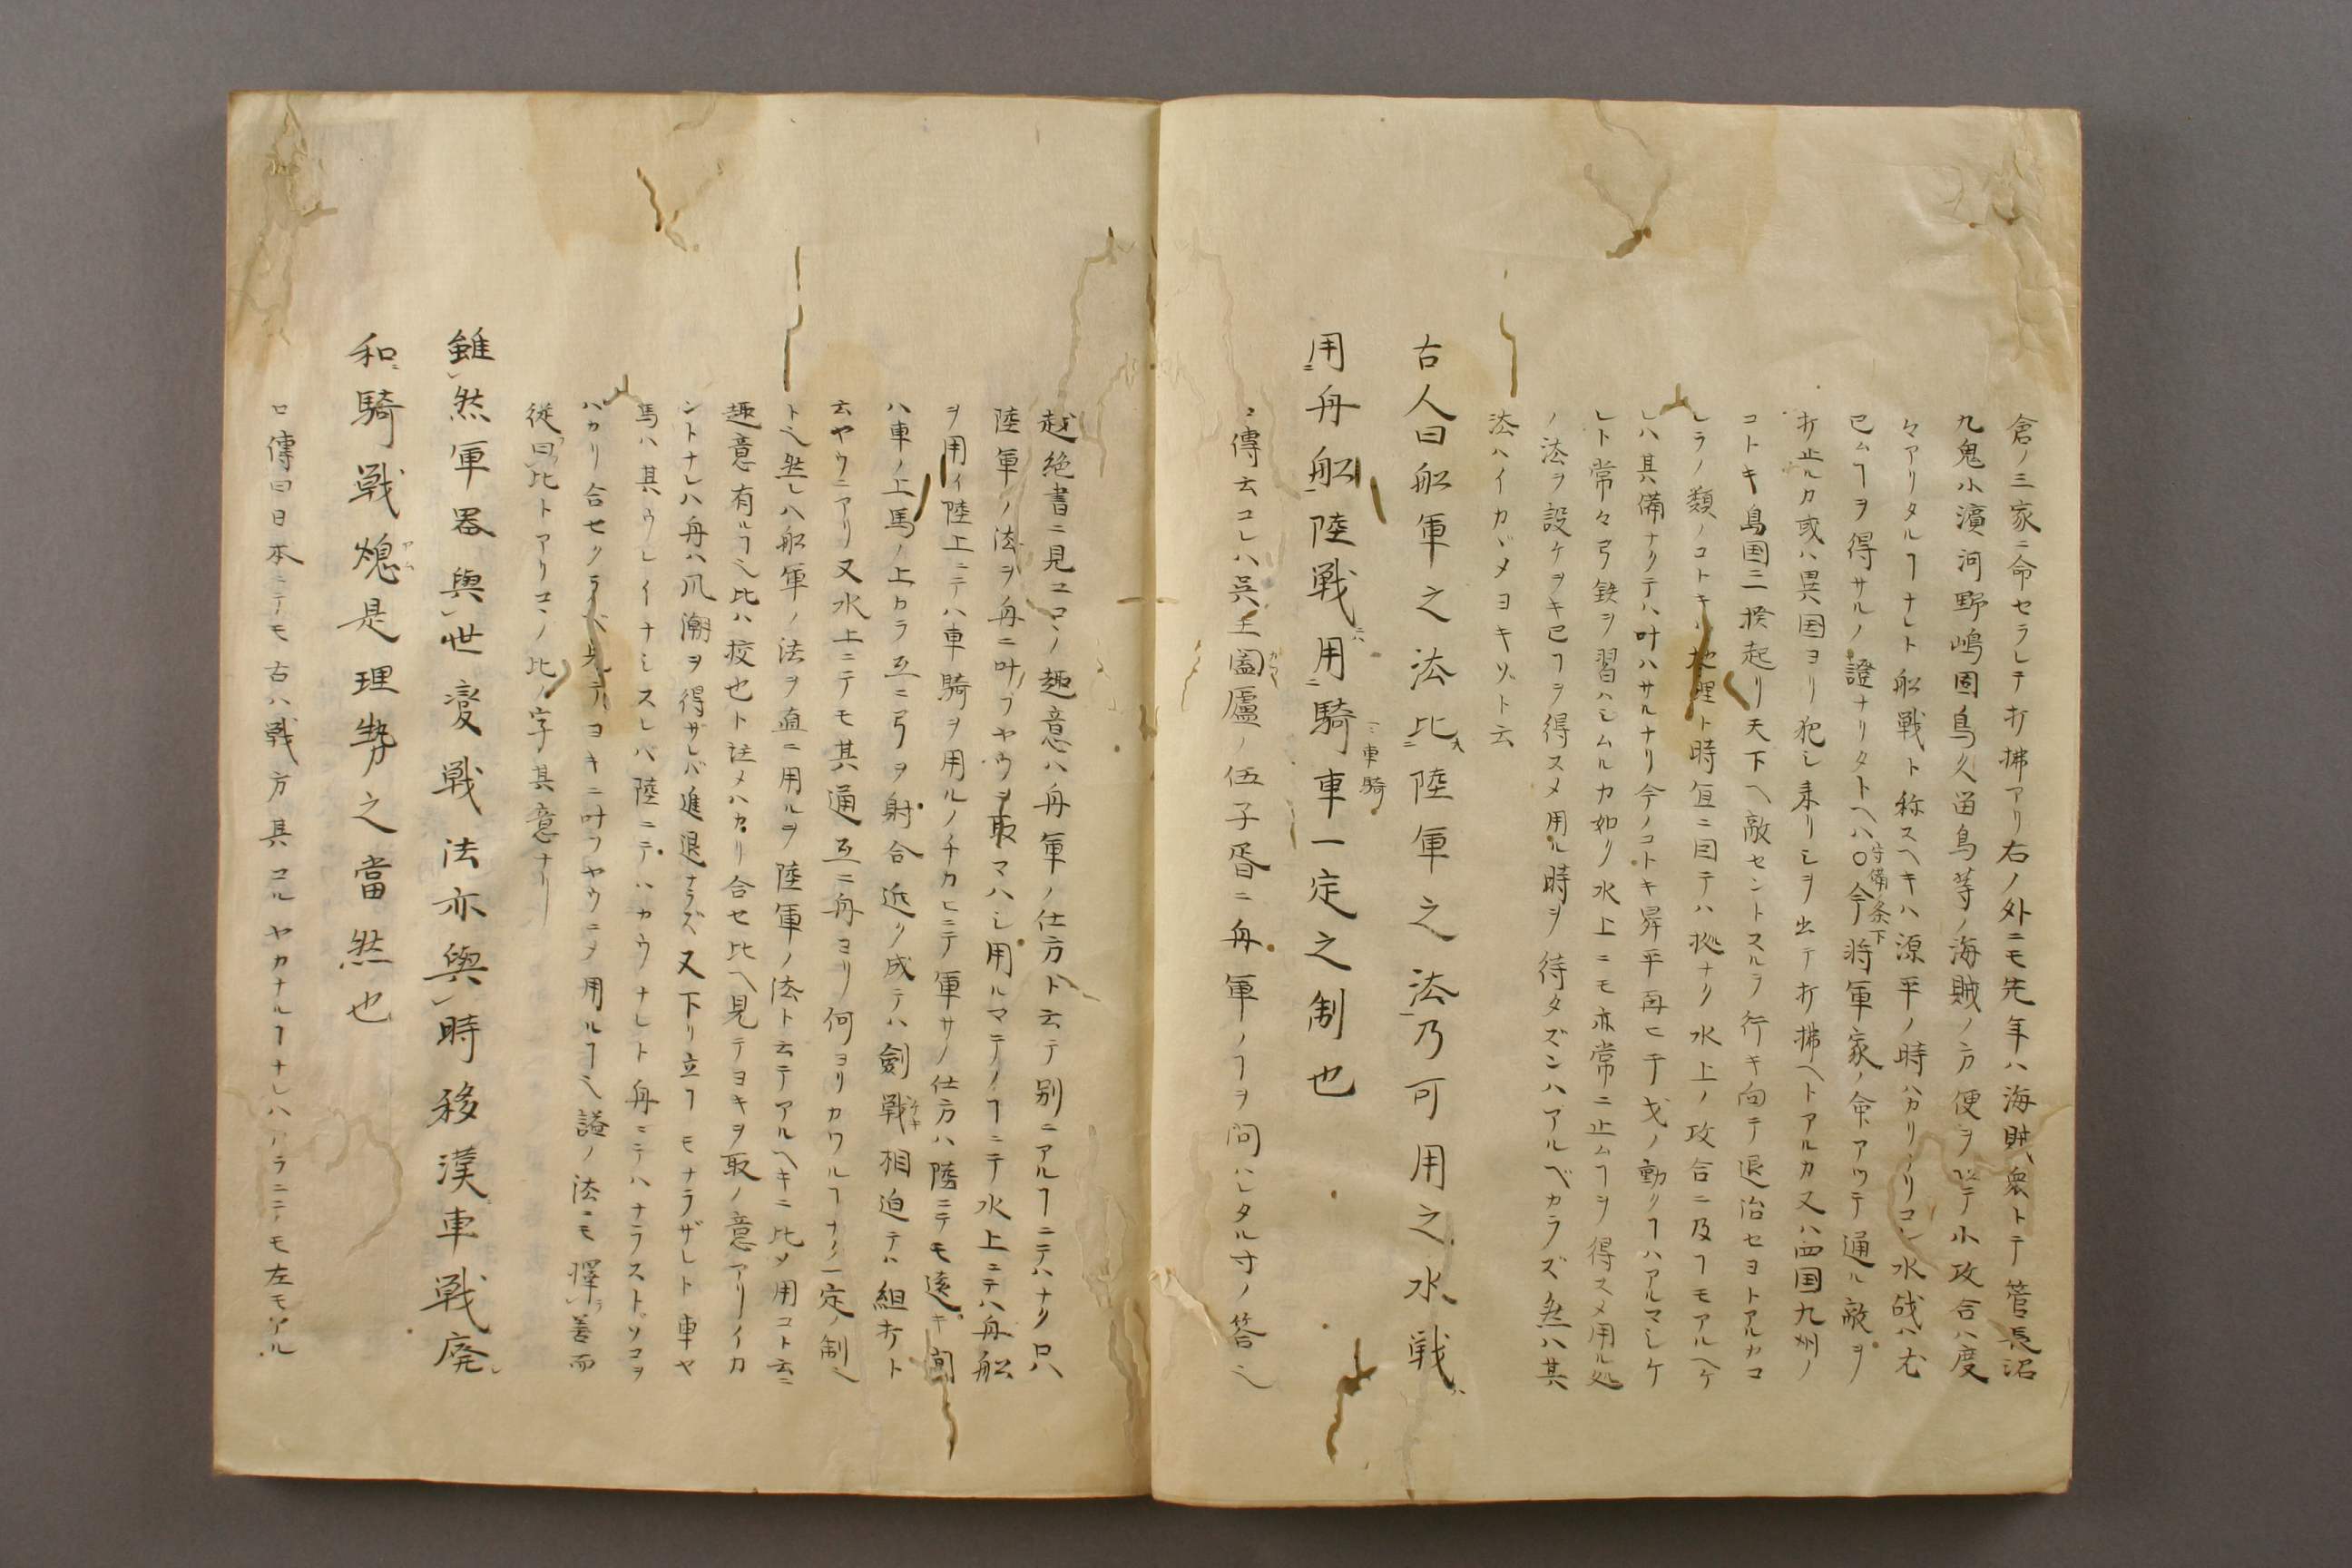 倉ノ三家ニ命セラレテ打拂アリ右ノ外ニモ先年ハ海賊衆トテ菅長沼
九鬼小濵河野嶋圍烏久留島等ノ海賊ノ方便ヲ以テ小攻合ハ度
々アリタルヿナレト船戦ト称スヘキハ源平ノ時ハカリノリコン水戦ハ尤
已ムヿヲ得サルノ證ナリタトヘハ〇今将軍家ノ命アツテ通ル敵ヲ
守備ノ条下
打止ルカ或ハ異国ヨリ犯シ来リシヲ出テ打拂ヘトアルカ又ハ四国九州ノ
コトキ島国ニ揆起リ天下ヘ敵セントスルヲ行キ向テ退治セヨトアルカコ
レラノ類ノコトキハ地理ト時宜ニ因テハ拠ナク水上ノ攻合ニ及フモアルヘケ
レハ其備ナクテハ叶ハサルナリ今ノコトキ昇平再ヒ干戈ノ動クヿハアルマシケ
レト常々弓鉄ヲ習ハシムルカ如ク水上ニモ亦常ニ止ムヿヲ得スメ用ル処
ノ法ヲ設ケヲキ已ヿヲ得スメ用ル時ヲ待タズンハアルベカラズ然ハ其
法ハイカヾメヨキソト云
古人曰船軍之法比陸軍之法乃可用之水戦
用舟船陸戦用騎車一定之制也
車騎
傳云コレハ呉王闔廬ノ伍子胥ニ舟軍ノヿヲ問ハレタル寸ノ答ヘ
越絶書ニ見ユコノ趣意ハ舟軍ノ仕方ト云テ別ニアルヿニテハナク只
陸軍ノ法ヲ舟ニ叶フヤウヲ取マハシ用ルマテノヿニテ水上ニテハ舟船
ヲ用イ陸上ニテハ車騎ヲ用ルノチカヒニテ軍サノ仕方ハ陸ニテモ遠キ間
ハ車ノ上馬ノ上カラ互ニ弓ヲ射合近ク成テハ劍戟相迫テハ組打ト
云ヤウニアリ又水上ニテモ其通互ニ舟ヨリ何ヨリカワルヿナク一定ノ制
ト然レハ船軍ノ法ヲ直ニ用ルヲ陸軍ノ法ト云テアルヘキニ比メ用コト云ニ
趣意有ルヿ比ハ挍也ト註メハカリ合セ比ヘ見テヨキヲ取ノ意アリイカ
ントナレハ舟ハ風潮ヲ得サレバ進退ナラズ又下リ立ヿモナラザレト車ヤ
馬ハ其ウレイナシスレバ陸ニテハカウナレト舟ニテハナラストソコヲ
ハカリ合セクラベ見テヨキニ叶フヤウニメ用ルヿ謚ノ法ニモ擇善而
従曰比トアリコノ比ノ字其意ナリ
雖然軍器與世変戦法亦與時移漢車戦廃
和騎戦熄是理勢之當然也
傳曰日本ニテモ古ハ戦方其コルヤカナルヿナレハハラニテモ左モソル